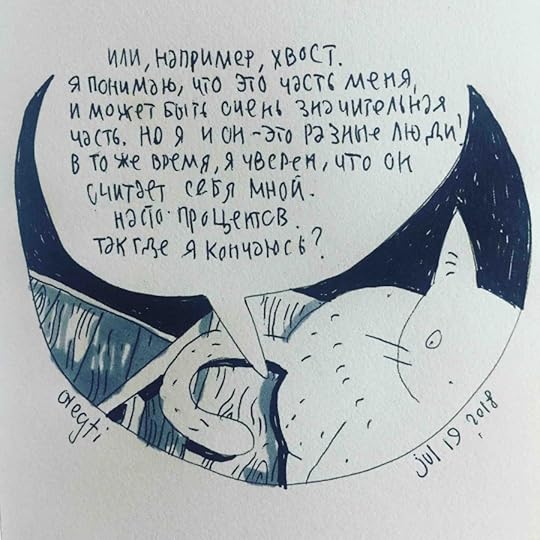 или, например, хвост.
я понимаю, что это часть меня,
и может быть очень значительная
часть. но я и он - это разные люди!
в то же время, я уверен, что он
считает себя мной.
на сто процентов.
так где я кончаюсь?
olegti
jul 19 2018